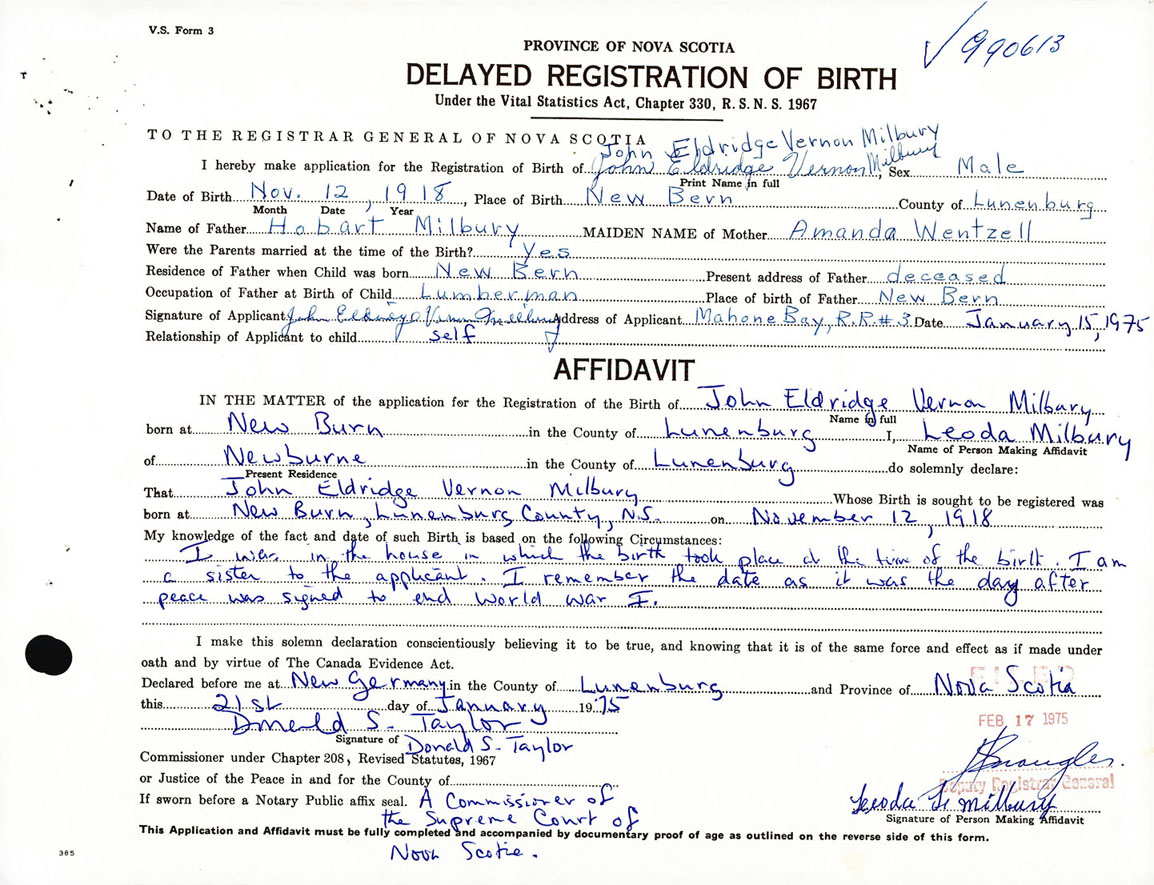 V.S. Form 3
√990613
PROVINCE OF NOVA SCOTIA
DELAYED REGISTRATION OF BIRTH
Under the Vital Statistics Act, Chapter 330, R. S. N. S. 1967
TO THE REGISTRAR GENERAL OF NOVA SCOTIA
John Eldridge Vernon Milbury
I hereby make application for the Registration of Birth of John Eldridge Vernon Milbury, Sex Male
Print Name in full
Date of Birth Nov. 12, 1918, Place of Birth New Bern County of Lunenburg
Month Date Year
Name of Father Hobart Milbury MAIDEN NAME of Mother Amanda Wentzell
Were the Parents married at the time of the Birth? Yes
Residence of Father when Child was born New Bern Present address of Father deceased
Occupation of Father at Birth of Child Lumberman Place of birth of Father New Bern
Signature of Applicant John Eldridge Vernon Milbury Address of Applicant Mahone Bay, R.R.#3 Date January 15, 1975
Relationship of Applicant to child self
AFFIDAVIT
IN THE MATTER of the application for the Registration of the Birth of John Eldridge Vernon Milbury
Name in full
born at New Burn in the County of Lunenburg I, Leoda Milbury
Name of Person Making Affidavit
of Newburne in the County of Lunenburg do solemnly declare:
Present Residence
That John Eldridge Vernon Milbury Whose Birth is sought to be registered was
born at New Burn, Lunenburg County, N.S. on November 12, 1918
My knowledge of the fact and date of such Birth is based on the following Circumstances:
I was in the house in which the birth took place at the time of the birth. I am
a sister to the applicant. I remember the date as it was the day after
peace was signed to end World War I.
I make this solemn declaration conscientiously believing it to be true, and knowing that it is of the same force and effect as if made under
oath and by virtue of The Canada Evidence Act.
FILED
Declared before me at New Germany in the County of Lunenburg and Province of Nova Scotia
this 21st day of January 1975
FEB 17 1975
Donald S. Taylor
Signature of Donald S. Taylor
Commissioner under Chapter 208, Revised Statutes, 1967
or Justice of the Peace in and for the County of
Deputy Registrar General
If sworn before a Notary Public affix seal. A Commissioner of
the Supreme Court of
Leoda F. Milbury
Signature of Person Making Affidavit
This Application and Affidavit must be fully completed and accompanied by documentary proof of age as outlined on the reverse side of this form.
Nova Scotia.
385